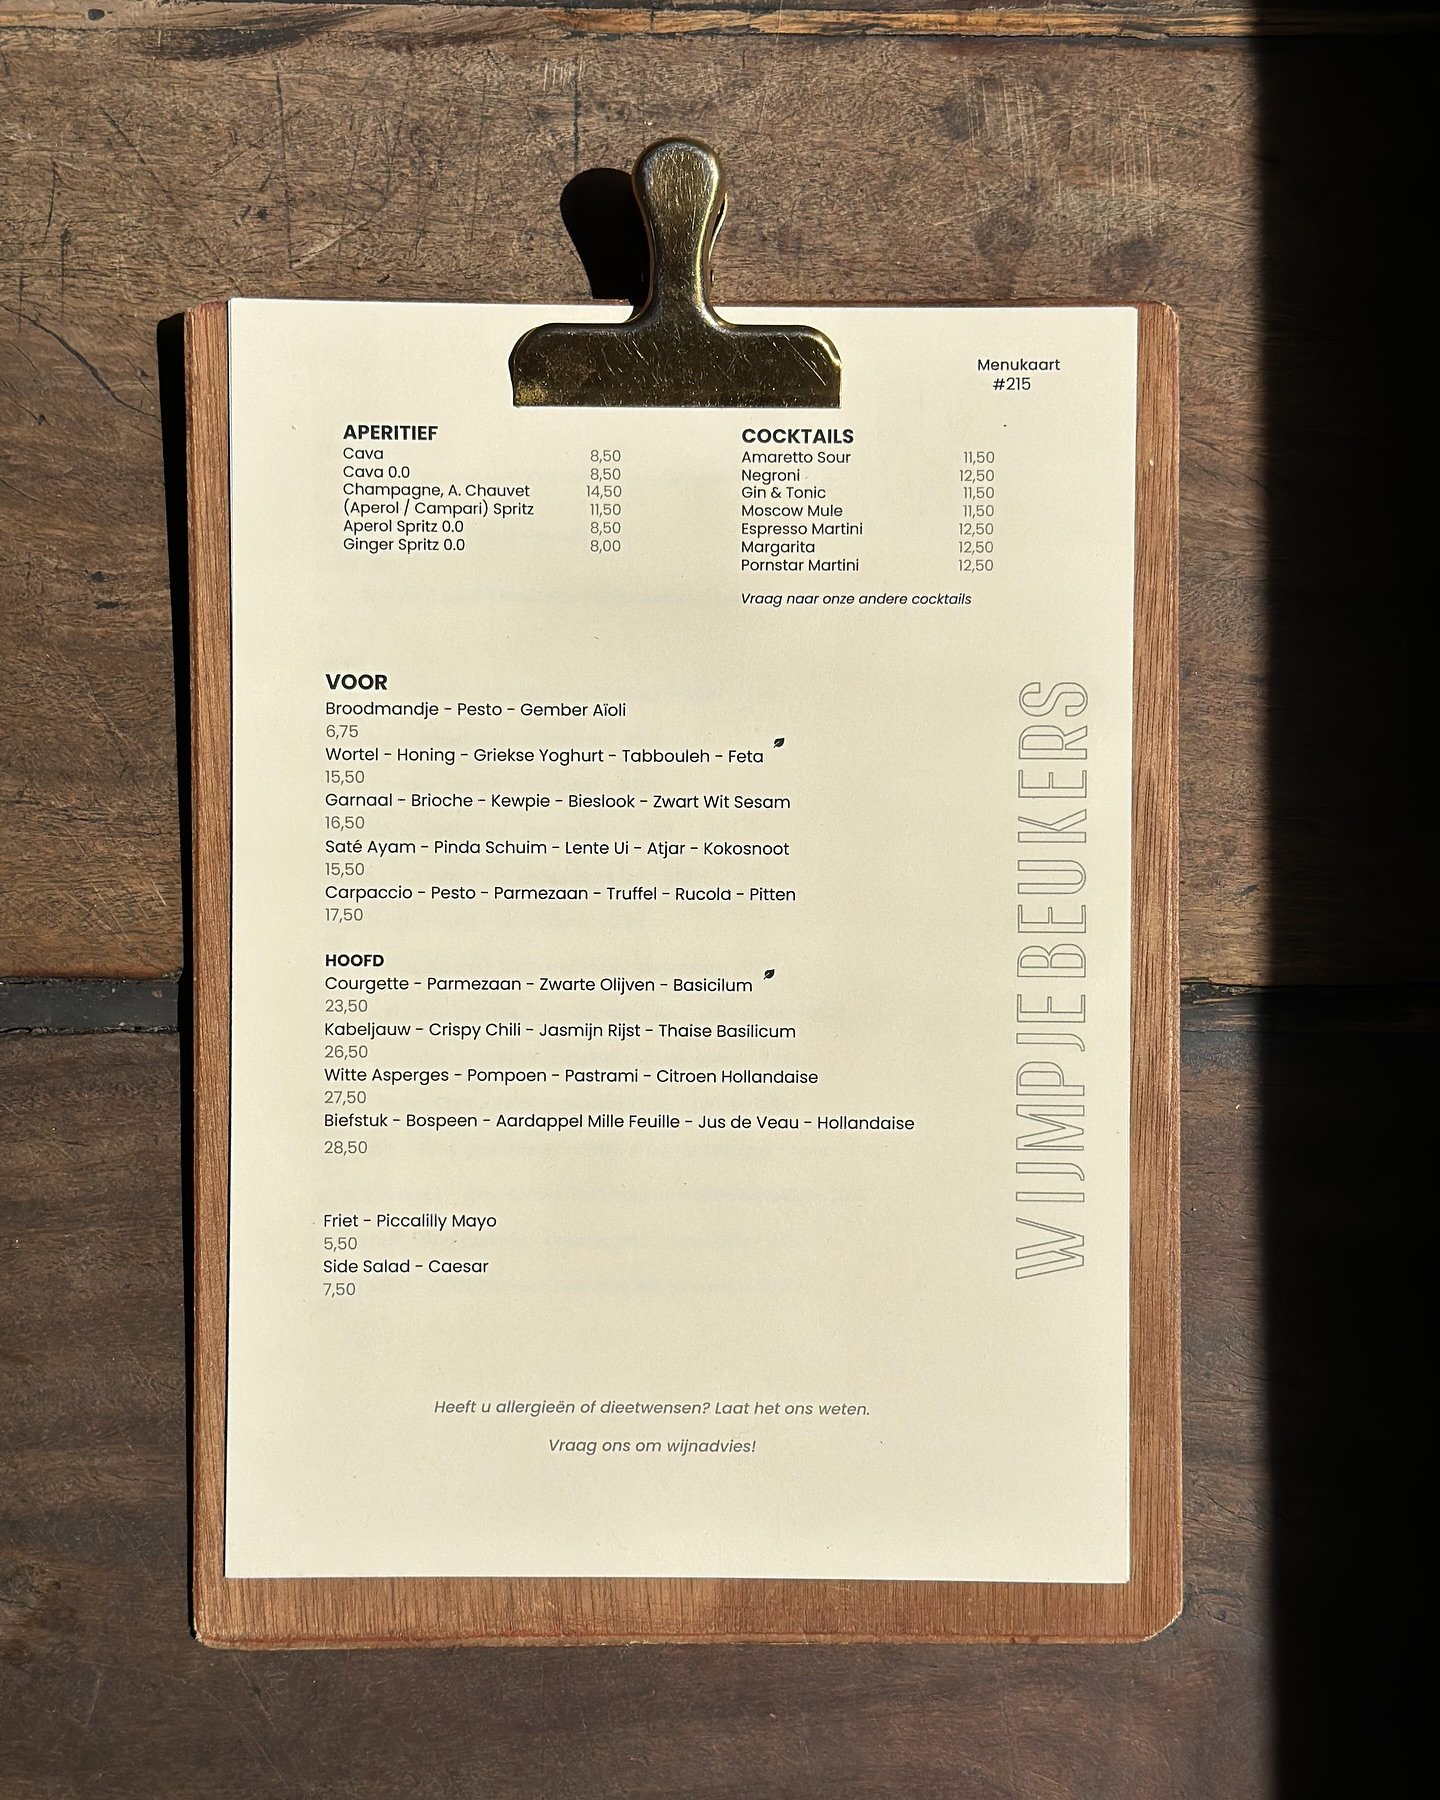 Menukaart
#215
APERITIEF
Cava 8,50
Cava 0.0 8,50
Champagne, A. Chauvet 14,50
(Aperol / Campari) Spritz 11,50
Aperol Spritz 0.0 8,50
Ginger Spritz 0.0 8,00
COCKTAILS
Amaretto Sour 11,50
Negroni 12,50
Gin & Tonic 11,50
Moscow Mule 11,50
Espresso Martini 12,50
Margarita 12,50
Pornstar Martini 12,50
Vraag naar onze andere cocktails
VOOR
Broodmandje - Pesto - Gember Aïoli
6,75
Wortel - Honing - Griekse Yoghurt - Tabbouleh - Feta
15,50
Garnaal - Brioche - Kewpie - Bieslook - Zwart Wit Sesam
16,50
Saté Ayam - Pinda Schuim - Lente Ui - Atjar - Kokosnoot
15,50
Carpaccio - Pesto - Parmezaan - Truffel - Rucola - Pitten
17,50
HOOFD
Courgette - Parmezaan - Zwarte Olijven - Basicilum
23,50
Kabeljauw - Crispy Chili - Jasmijn Rijst - Thaise Basilicum
26,50
Witte Asperges - Pompoen - Pastrami - Citroen Hollandaise
27,50
Biefstuk - Bospeen - Aardappel Mille Feuille - Jus de Veau - Hollandaise
28,50
Friet - Piccalilly Mayo
5,50
Side Salad - Caesar
7,50
WIJMPJEBEUKERS
Heeft u allergieën of dieetwensen? Laat het ons weten.
Vraag ons om wijnadvies!